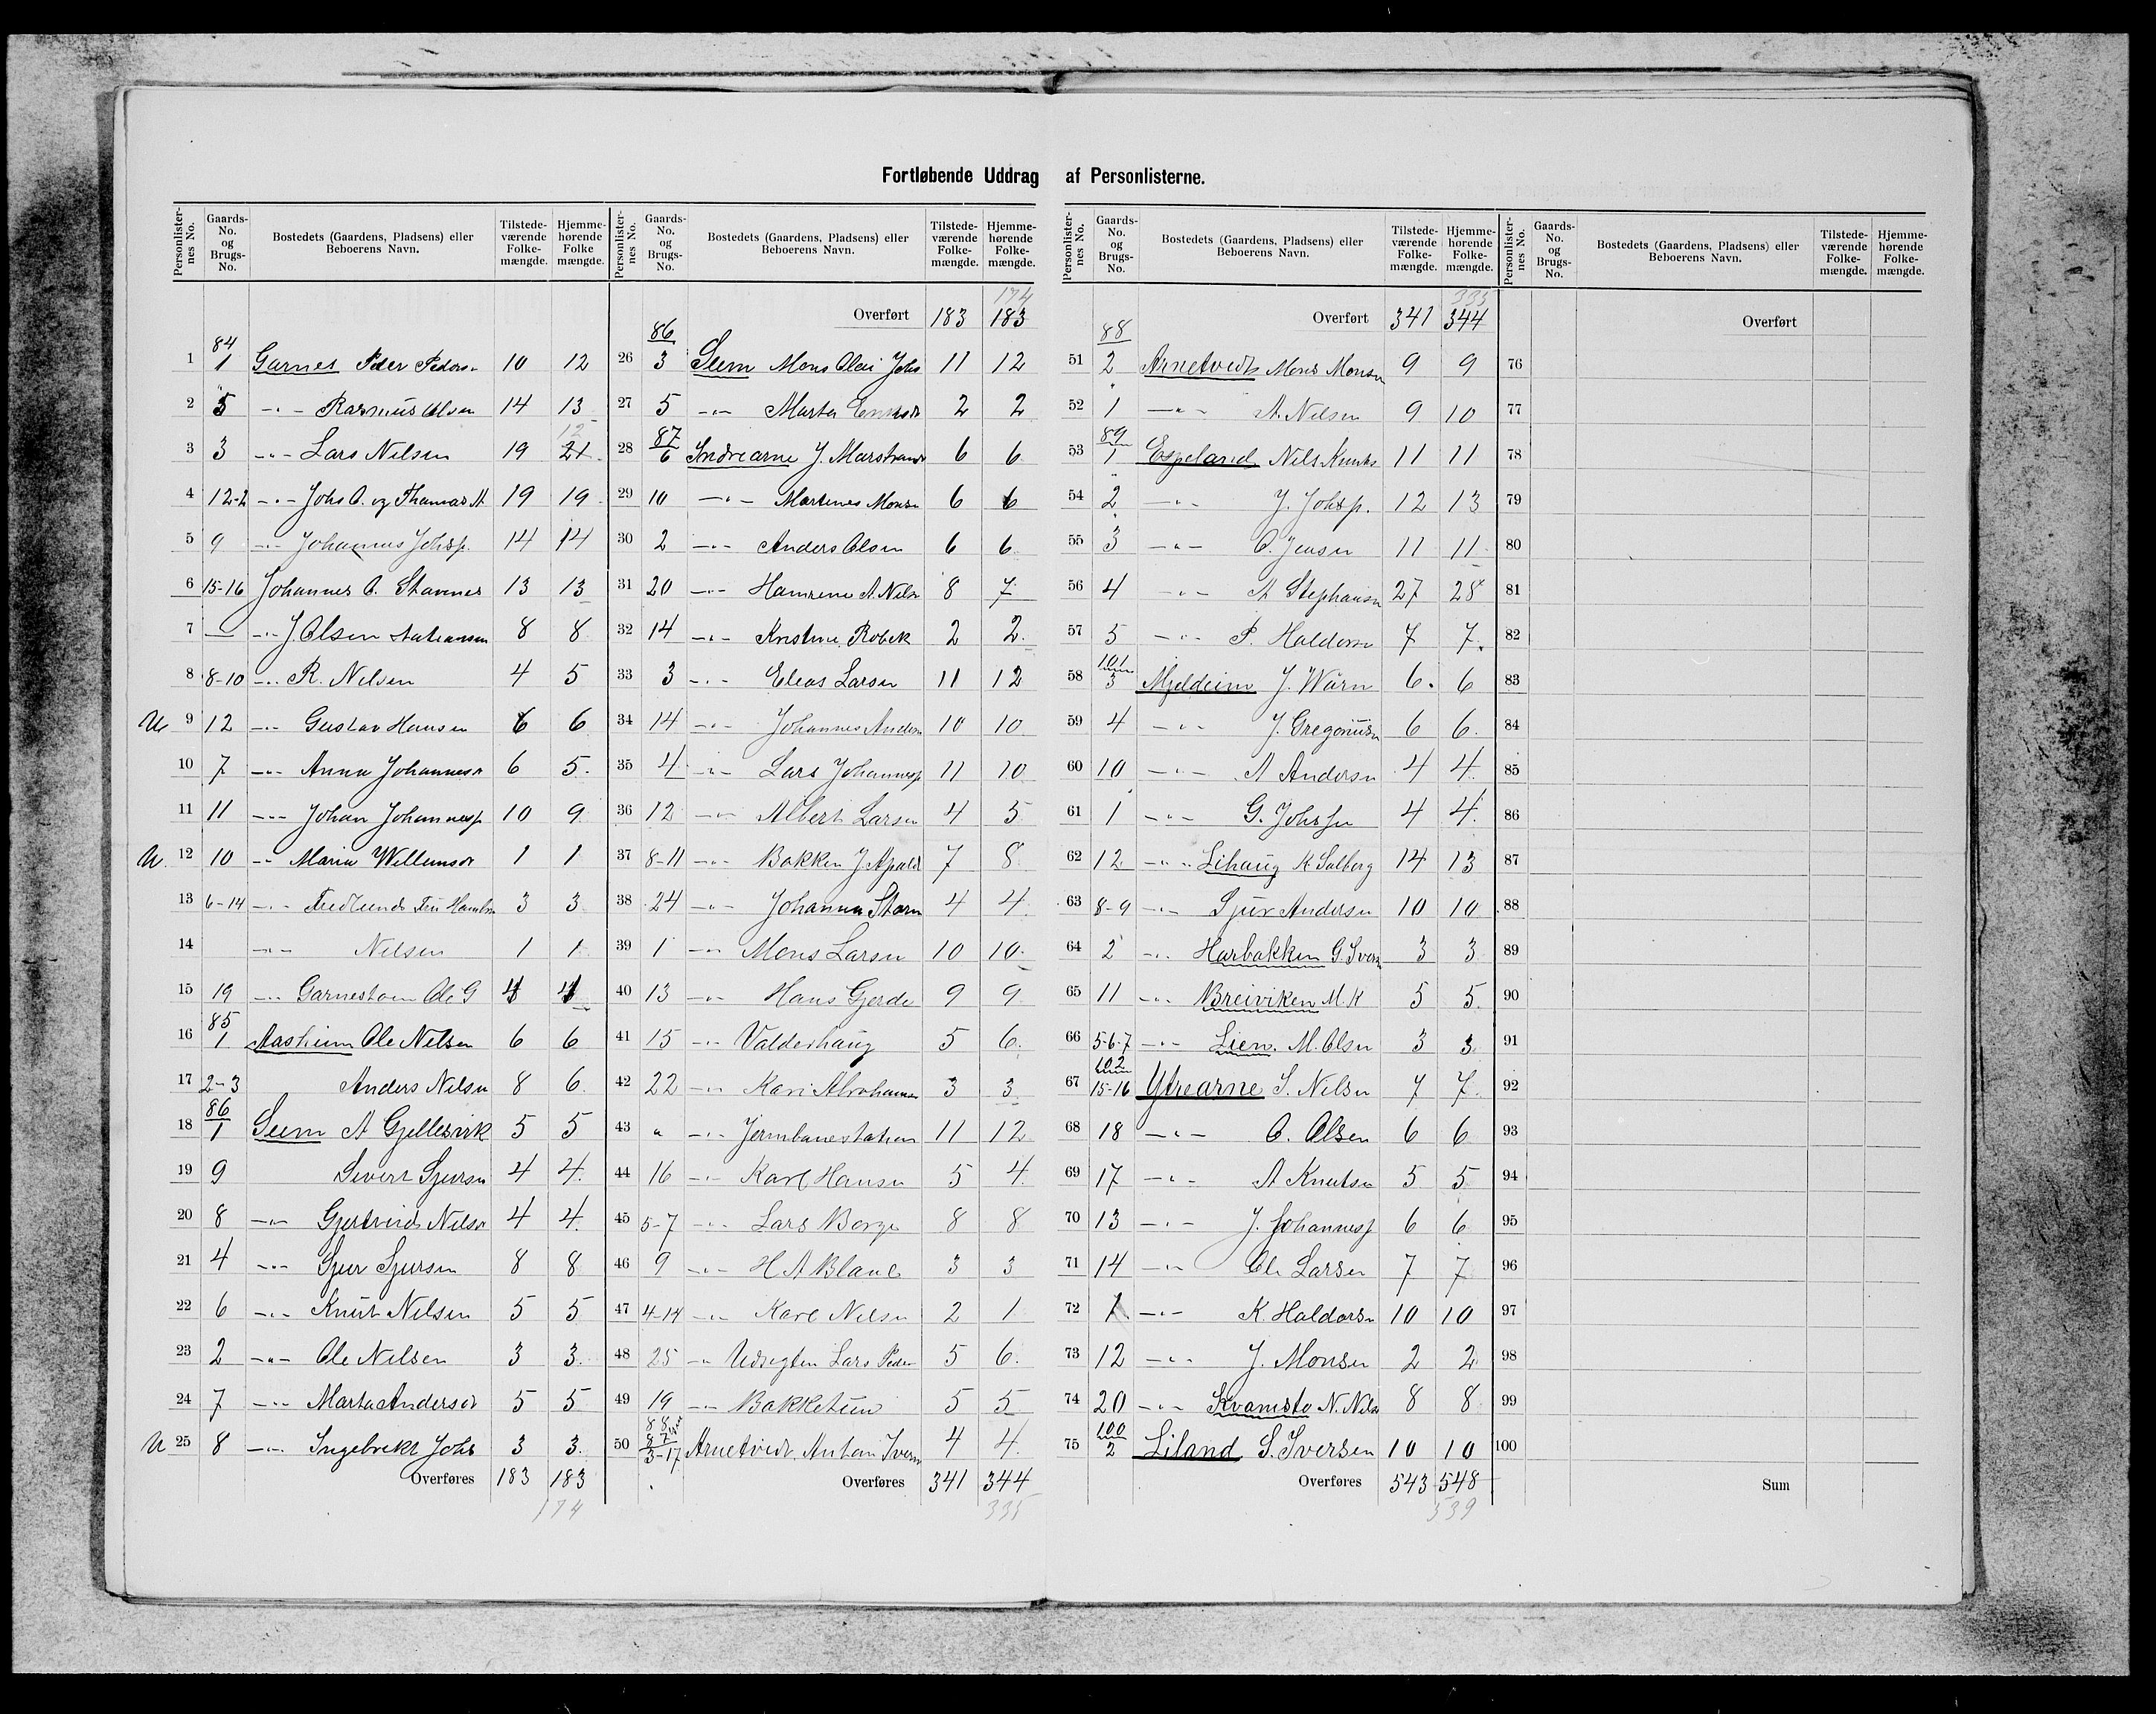 Fortløbende Uddrag af Personlisterne.
Personlisternes No. Gaards-No. og Brugs-No. Bostedets (Gaardens, Pladsens) eller Beboerens Navn. Tilstedeværende Folkemængde. Hjemmehørende Folkemængde.
1 84/1 Garnes Peder Peders. 10 12
2 5 -"- Rasmus Olsen 14 13
3 3 -"- Lars Nilsen 19 21 12
4 12-2 -"- Johs O. og Thomas A. 19 19
5 9 -"- Johannes Johsp. 14 14
6 15-16 Johannes O. Stavenes 13 13
7 — -"- J. Olsen 8 8
8 8-10 -"- R. Nilsen 4 5
U 9 12 -"- Gustav Hansen 6 6
10 7 -"- Anna Johannesdr 6 5
11 11 -"- Johan Johannesp 10 9
U. 12 10 -"- Maria Willumsdr 1 1
13 6-14 -"- Fredlund 3 3
14 -"- Nilsen 1 1
15 19 -"- Ole G 4 4
16 85/1 Aasheim Ole Nilsen 6 6
17 2-3 Anders Nilsn 8 6
18 86/1 Seim A Gjellesvik 5 5
19 9 Sivert Sjursn 4 4
20 8 -"- Gjertrud Nilsdr 4 4
21 4 -"- Sjur Sjursen 8 8
22 6 -"- Knut Nilsen 5 5
23 2 -"- Ole Nilsen 3 3
24 7 -"- Marta Andersdr 5 5
U 25 8 -"- Ingebrekt Johs 3 3
Overføres 183 183
174
Overført 183 183 174
26 86/3 Seim Mons Olai Johs 11 12
27 5 -"- Marta 2 2
28 87/6 Indrearne J. Marstrand 6 6
29 10 -"- Martines Monsn 6 6
30 2 -"- Anders Olsen 6 6
31 20 -"- A. Nilsn 8 7
32 14 -"- Kristine Robek 2 2
33 3 -"- Elias Larsen 11 12
34 14 -"- Johannes Andersn 10 10
35 4 -"- Lars Johannesp 11 10
36 12 -"- Albert Larsen 4 5
37 8-11 -"- Bakken J Apald 7 8
38 24 -"- Johanna Storm 4 4
39 1 -"- Mons Larsen 10 10
40 13 -"- Hans Gjerde 9 9
41 15 -"- Valderhaug 5 6
42 22 -"- Kari Abrahamsn 3 3
43 " -"- Jernbanestation 11 12
44 16 -"- Karl Hansen 5 4
45 5-7 -"- Lars Borge 8 8
46 9 -"- H A Blanc 3 3
47 4-14 -"- Karl Nilsn 2 1
48 25 -"- Udsigten Lars Peders 5 6
49 19 -"- Bakketun 5 5
50 88 87/3-17 Arnetvedt. Anton Iversn 4 4
Overføres 341 344
335
Overført 341 344 335
51 88/2 Arnetvedt Mons Monsn 9 9
52 1 -"- A. Nilsen 9 10
53 89/1 Espeland Nils Knuts 11 11
54 2 -"- J. Johsp. 12 13
55 3 -"- O. Jensen 11 11
56 4 -"- A Stephansn 27 28
57 5 -"- P. Haldorsn 7 7
58 101/3 Mjeldeim J. Wärn 6 6
59 4 -"- J. Gregoriusn 6 6
60 10 -"- A Andersn 4 4
61 1 -"- G. Johssen 4 4
62 12 -"- Lihaug K. Solberg 14 13
63 8-9 -"- Sjur Andersen 10 10
64 2 -"- Harbakken G. Ivers 3 3
65 11 -"- Breiviken M. K 5 5
66 5-6-7 -"- Lien. M. Olsn 3 3
67 102/15-16 Ytrearne S. Nilsn 7 7
68 18 -"- O. Olsen 6 6
69 17 -"- A Knutsn 5 5
70 13 -"- J. Johannesp 6 6
71 14 -"- Ole Larsen 7 7
72 1 -"- K. Haldorsn 10 10
73 12 -"- J. Monsen 2 2
74 20 -"- Kvamsto N. Nilsn 8 8
75 100/2 Liland S. Iversen 10 10
Overføres 543 548
539
Overført
76
77
78
79
80
81
82
83
84
85
86
87
88
89
90
91
92
93
94
95
96
97
98
99
100
Sum